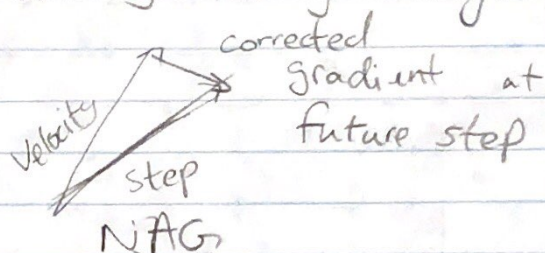 corrected
gradient at
future step
velocity
step
NAG